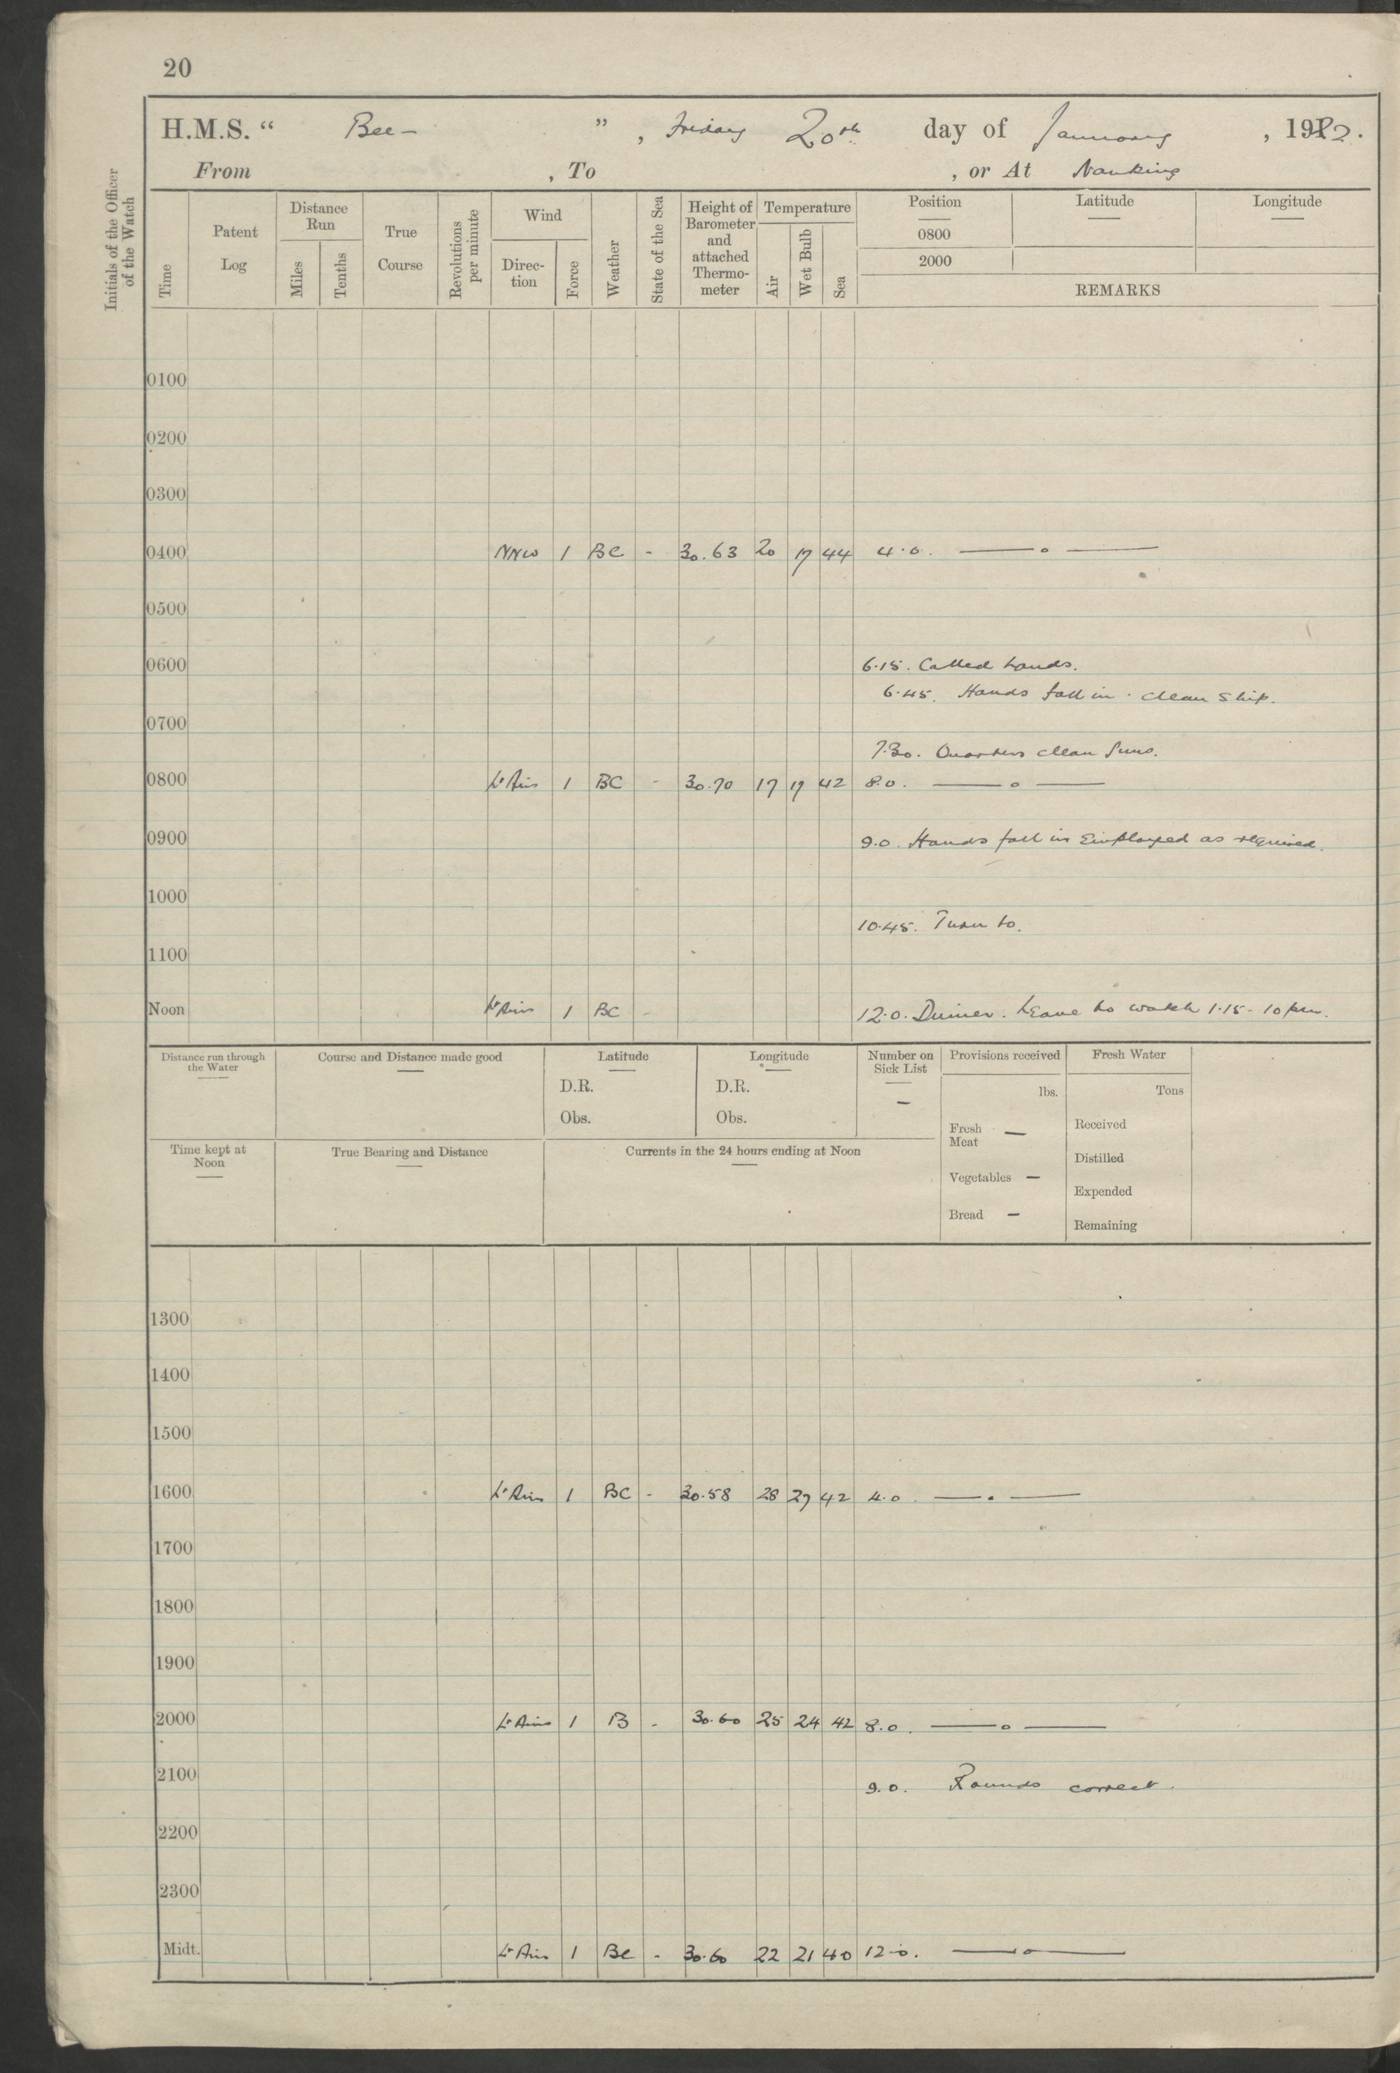 20
H.M.S. “ Bee- ” , Friday 20th day of January , 1922.
From , To , or At Nanking
Initials of the Officer of the Watch
Time
Patent Log
Distance Run
Miles
Tenths
True Course
Revolutions per minute
Wind
Direc-tion
Force
Weather
State of the Sea
Height of Barometer and attached Thermo-meter
Temperature
Air
Wet Bulb
Sea
Position
0800
2000
Latitude
Longitude
REMARKS
0100
0200
0300
0400 NNW 1 BC - 30.63 20 17 44 4.0. — o —
0500
0600 6.15. Called hands.
6.45. Hands fall in. clean ship.
0700
7.30. Quarters clean guns.
0800 Lt Airs 1 BC - 30.70 17 17 42 8.0. — o —
0900 9.0. Hands fall in Employed as required.
1000
10.45. Turn to.
1100
Noon Lt Airs 1 BC - 12.0. Dinner. Leave to watch 1.15 - 10 pm.
Distance run through the Water
Course and Distance made good
Latitude
D.R.
Obs.
Longitude
D.R.
Obs.
Number on Sick List
—
Provisions received
lbs.
Fresh Meat —
Vegetables —
Bread —
Fresh Water
Tons
Received
Distilled
Expended
Remaining
Time kept at Noon
True Bearing and Distance
Currents in the 24 hours ending at Noon
1300
1400
1500
1600 Lt Airs 1 BC - 30.58 28 27 42 4.0 — . —
1700
1800
1900
2000 Lt Airs 1 B - 30.60 25 24 42 8.0. — o —
2100 9.0. Rounds correct.
2200
2300
Midt. Lt Airs 1 BC - 30.60 22 21 40 12.0. — o —